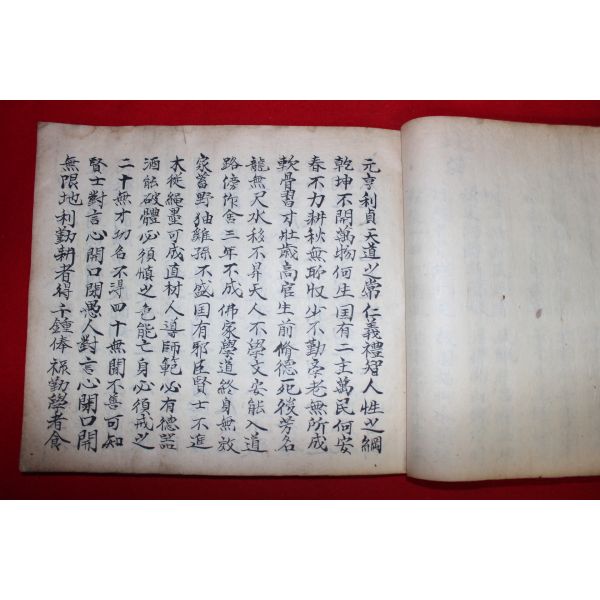 元亨利貞天道之常仁義禮智人性之綱
乾坤不開萬物何生国有二主萬民何安
春不力耕秋無所収少不勤学老無所成
軟骨習才壯歲高官生前脩德死後芳名
龍無尺水移不昇天人不學文安能入道
路傍作舍三年不成佛家學道終身無效
家畜野狐雞孫不盛国有邪臣賢士不進
木從繩墨可成直材人導師範必有德器
酒能破體必須慎之色能亡身必須戒之
二十無才功名不得四十無聞不善可知
賢士對言心開口閉愚人對言心閉口開
無限地利勤耕者得千鍾俸祿勤學者食